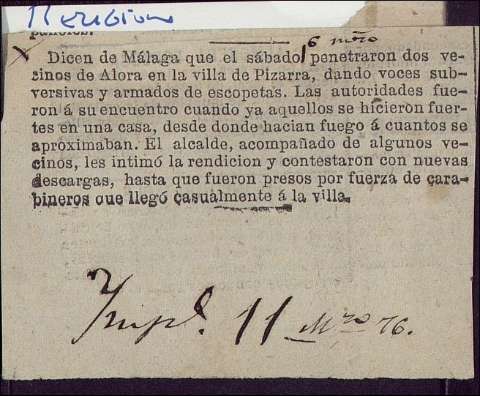 pañoles.
6 mzo
Dicen de Málaga que el sábado penetraron dos ve-
cinos de Alora en la villa de Pizarra, dando voces sub-
versivas y armados de escopetas. Las autoridades fue-
ron á su encuentro cuando ya aquellos se hicieron fuer-
tes en una casa, desde donde hacian fuego á cuantos se
aproximaban. El alcalde, acompañado de algunos ve-
cinos, les intimó la rendicion y contestaron con nuevas
descargas, hasta que fueron presos por fuerza de cara-
bineros que llegó casualmente á la villa.
Impl. 11 Mzo 76.